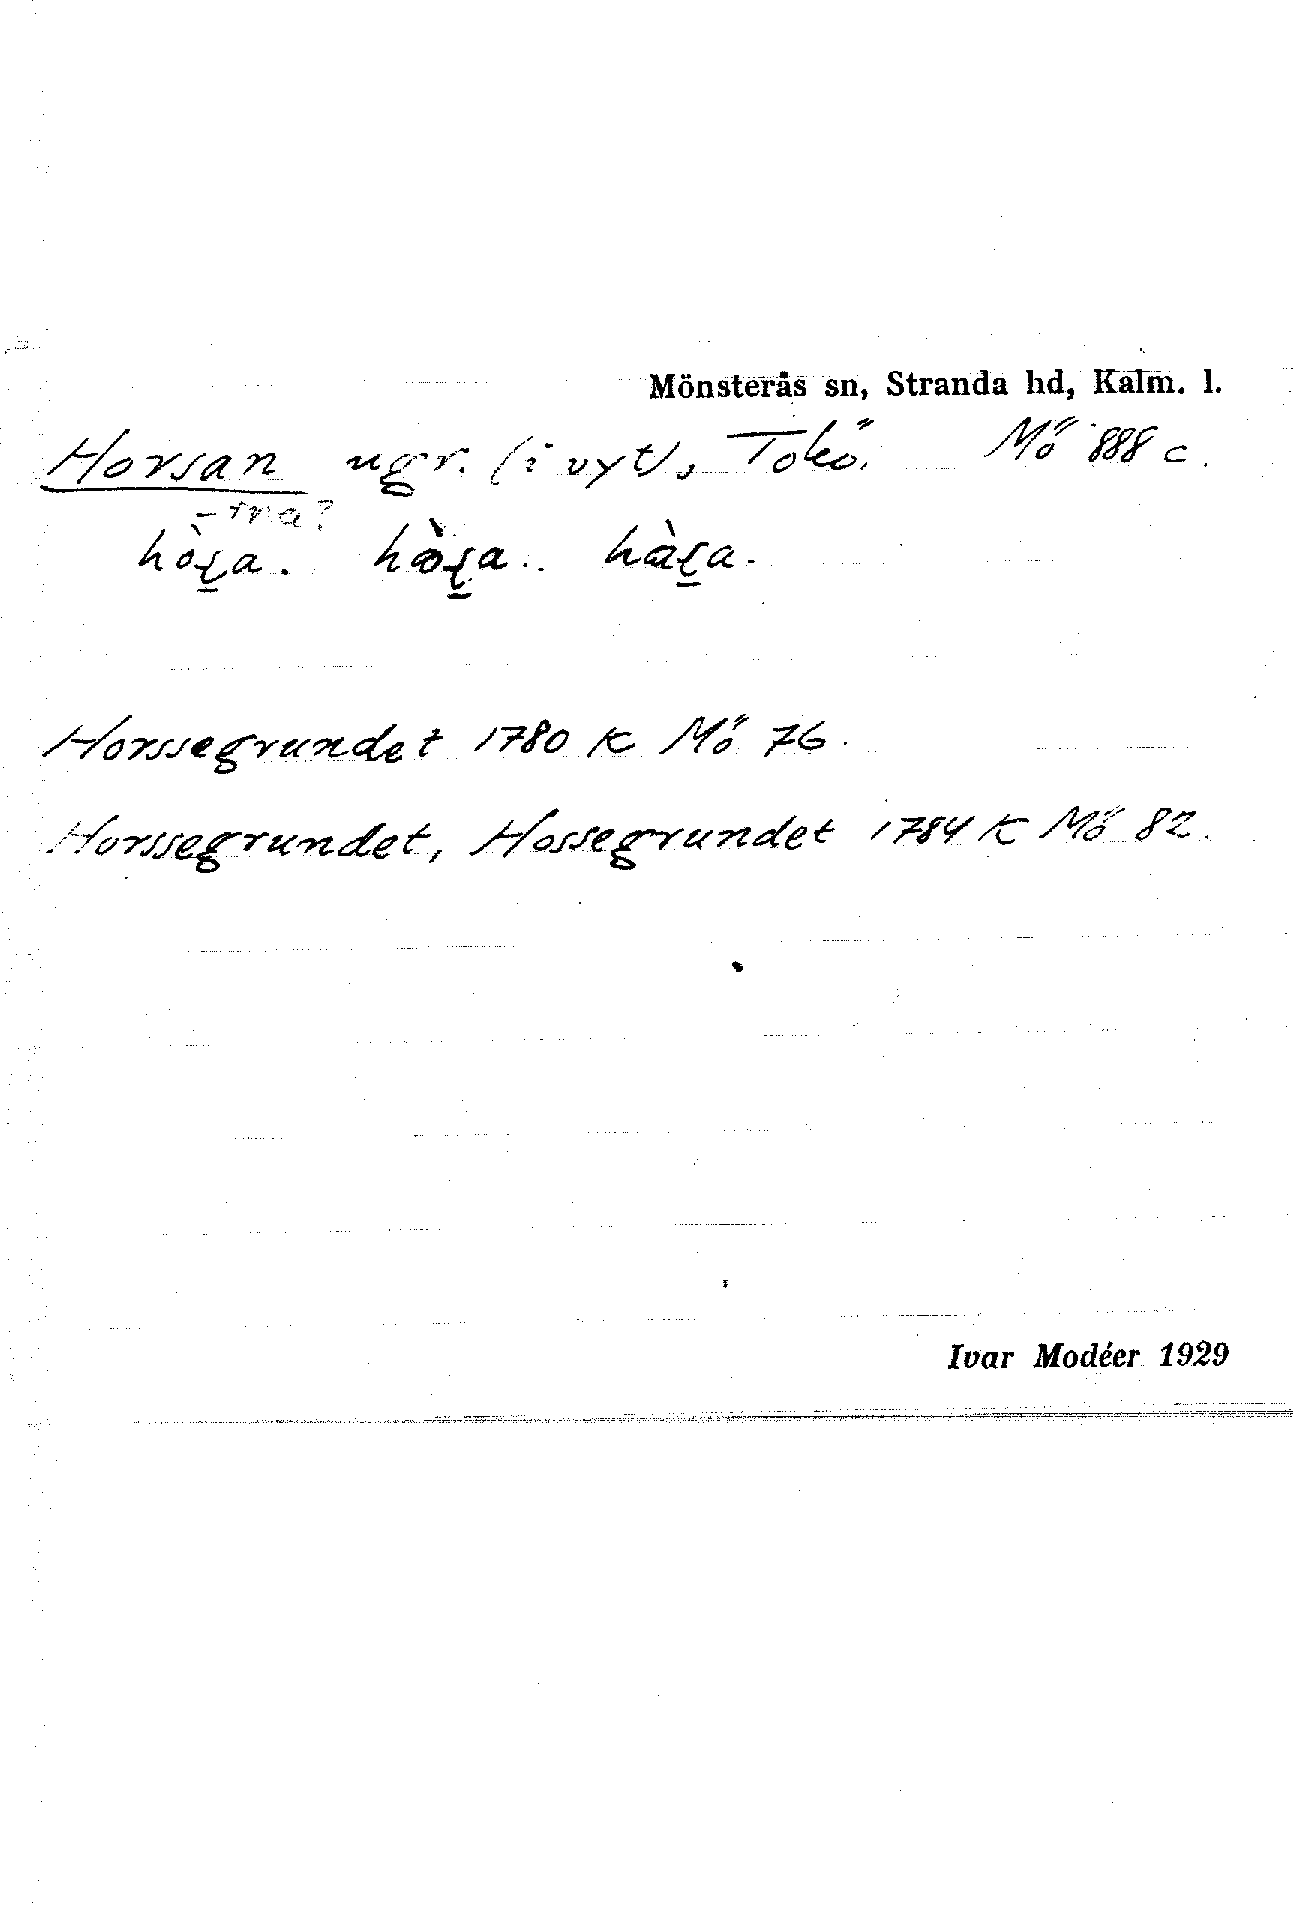 Mönsterås sn, Stranda hd, Kalm. l.
Horsan ugr. (i vyt), Tokö. Mö 888 c.
-rna?
hò̱ʂa. hɷ̀ʂ̱a. hàʂ̱a.
Horssegrundet 1780 K Mö 76.
Horssegrundet, Hossegrundet 1784 K Mö 82.
Ivar Modéer 1929